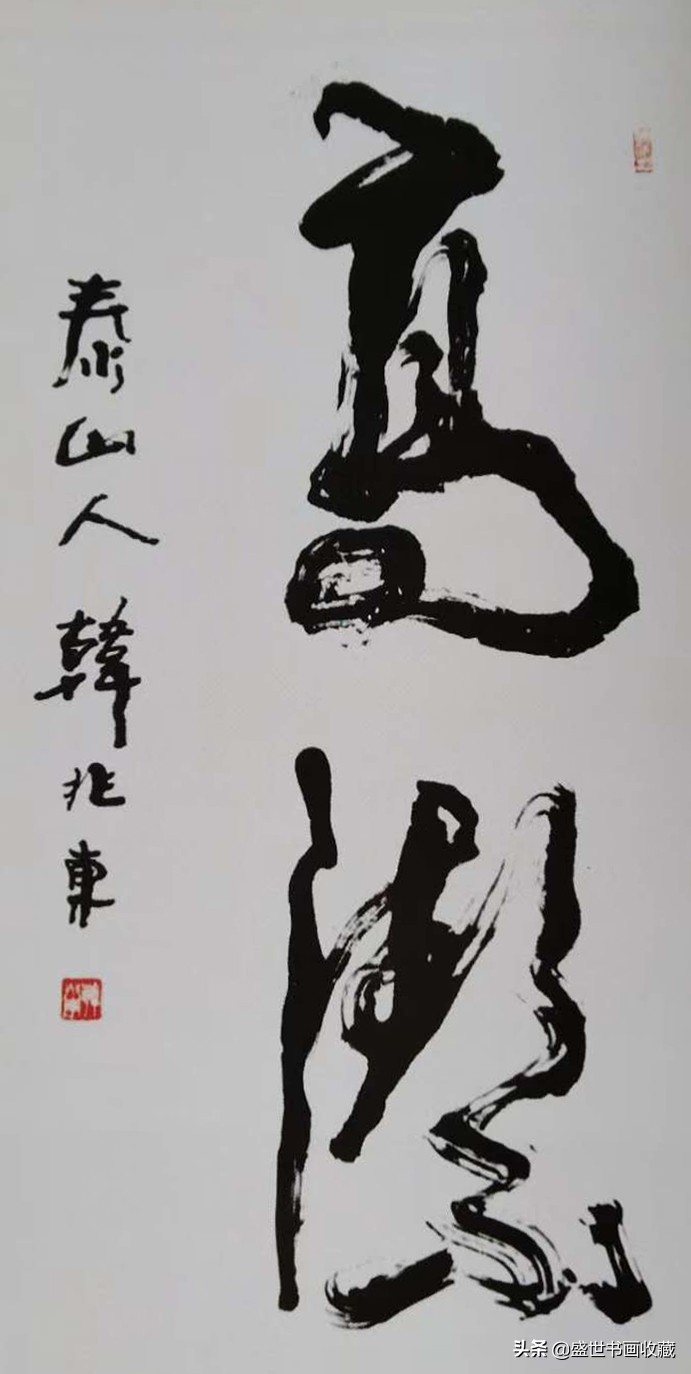 高
泰山人韓兆東
头条 @盛世书画收藏